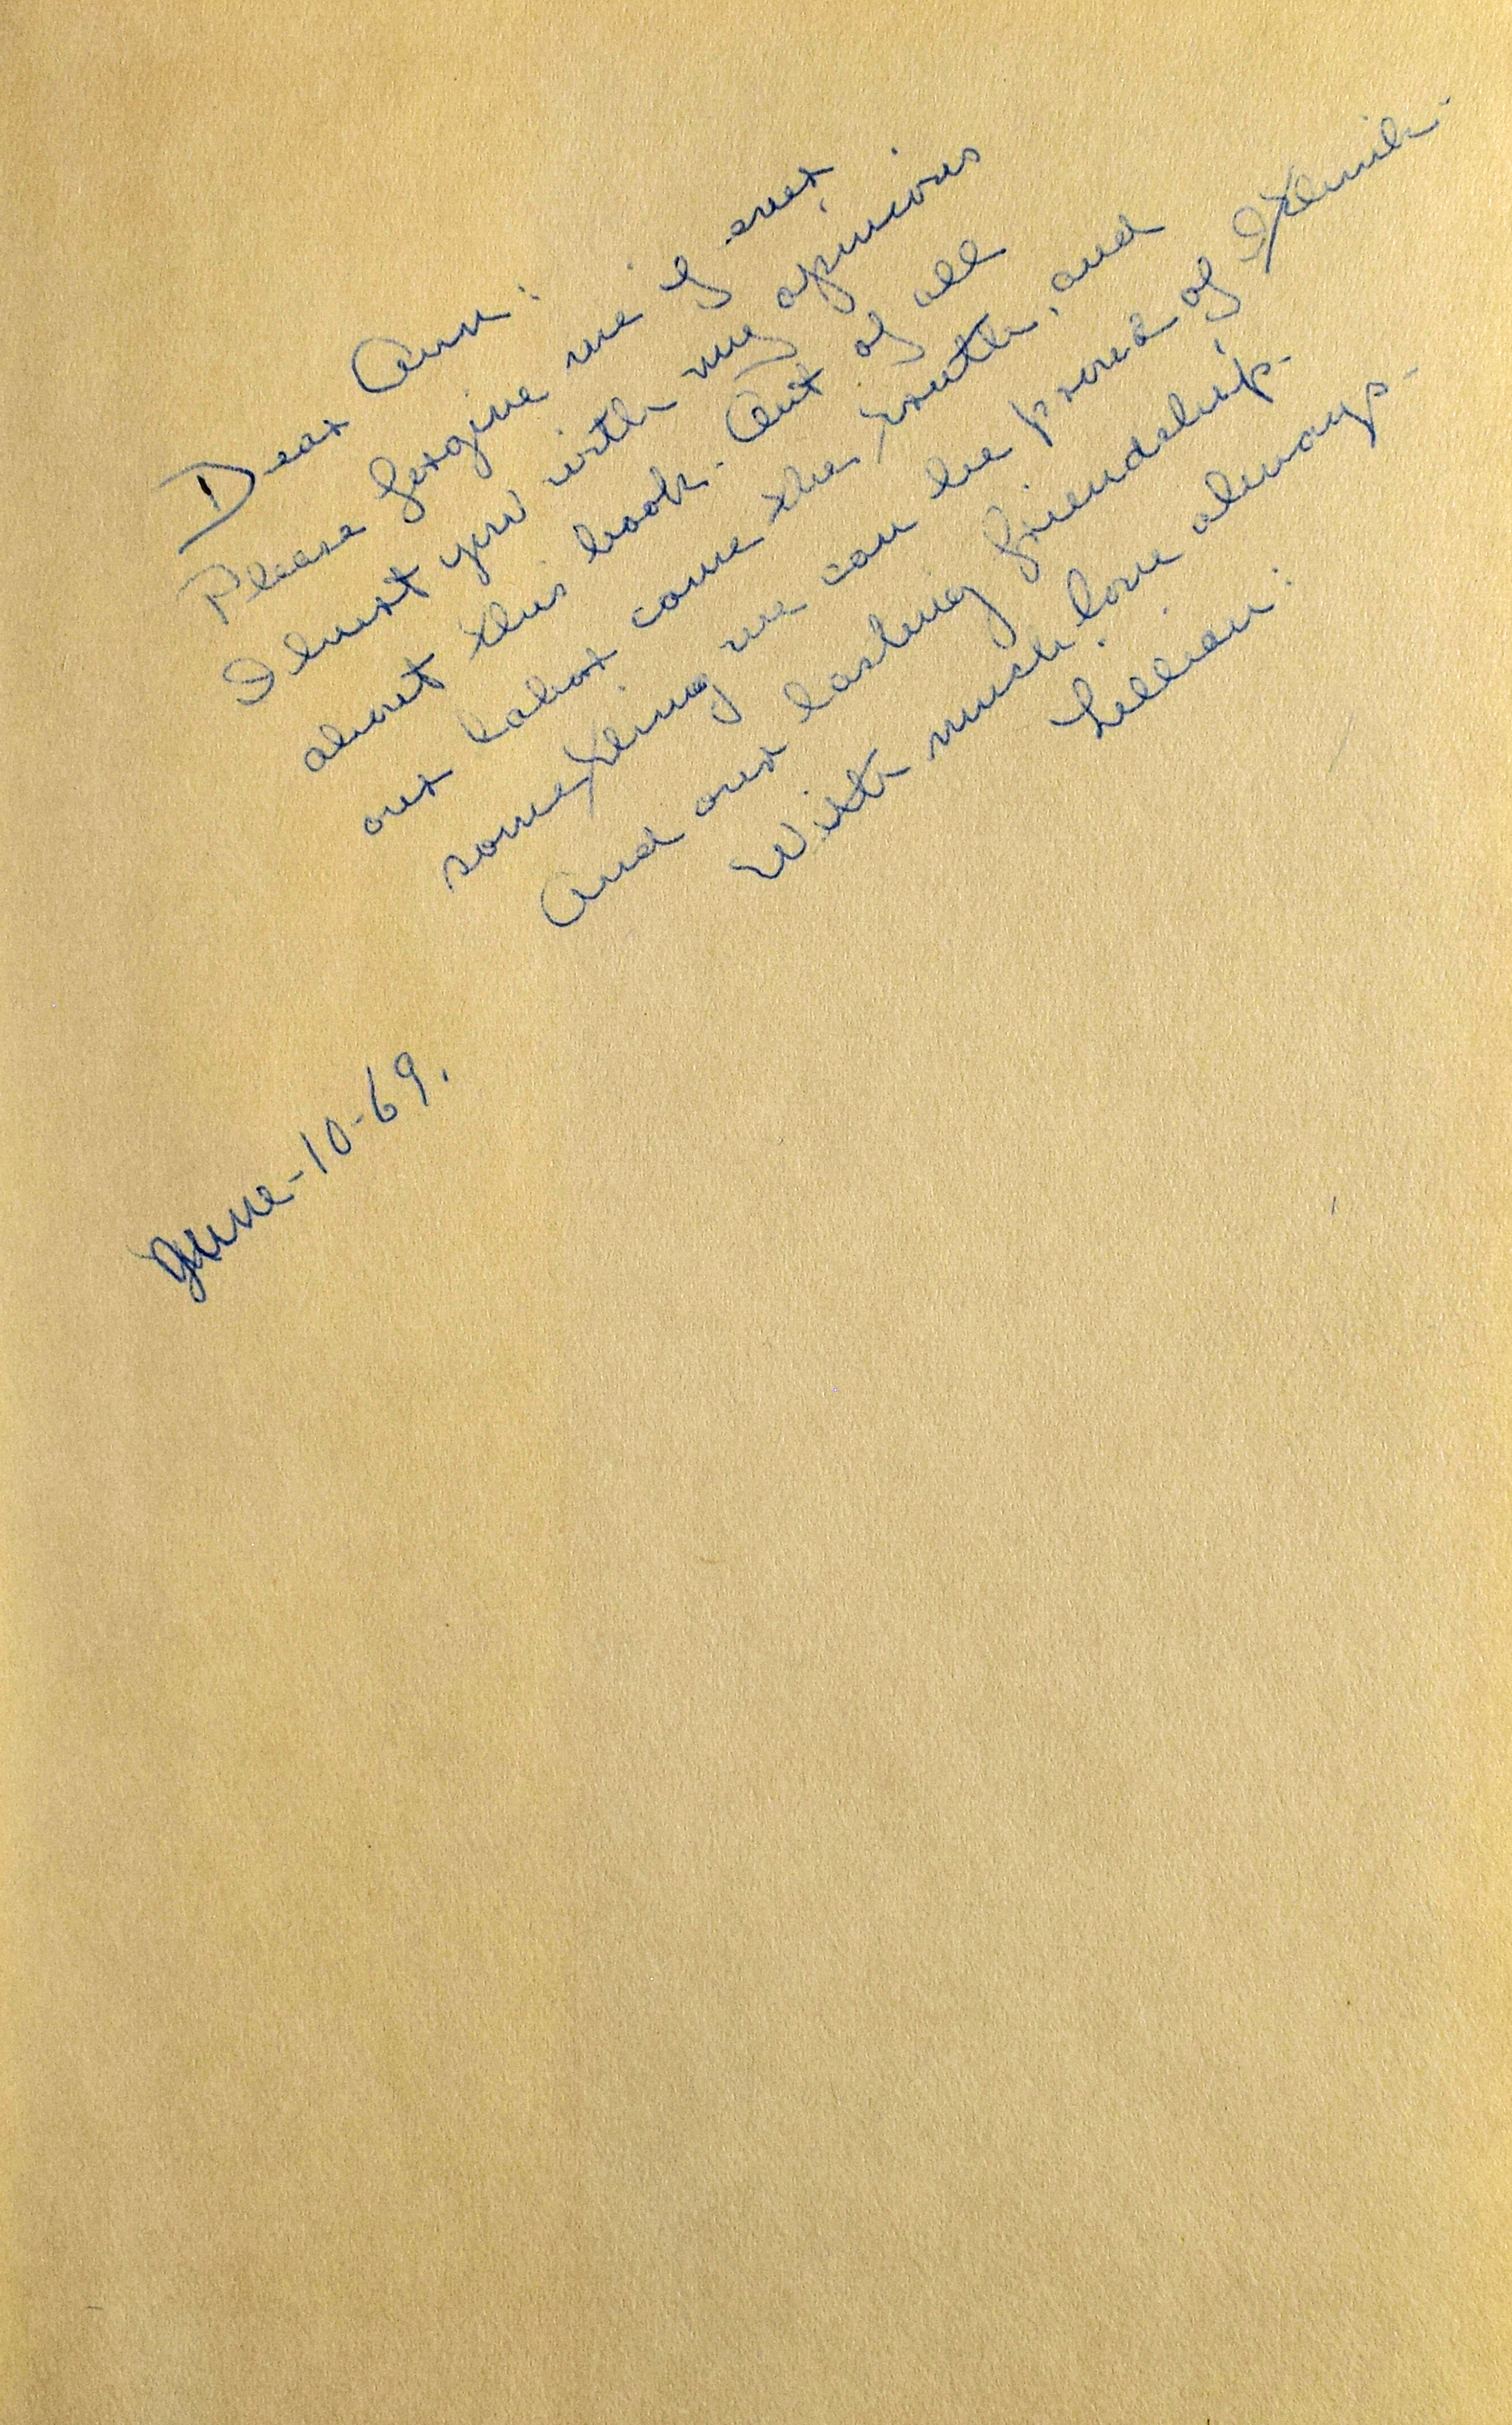 Dear Ann:
Please forgive me if ever
I hurt you with my opinions
about this book. Out of all
our labor came the truth, and
something we can be proud of I think.
And our lasting friendship.
With much love always.
Lillian.
June-10-69.